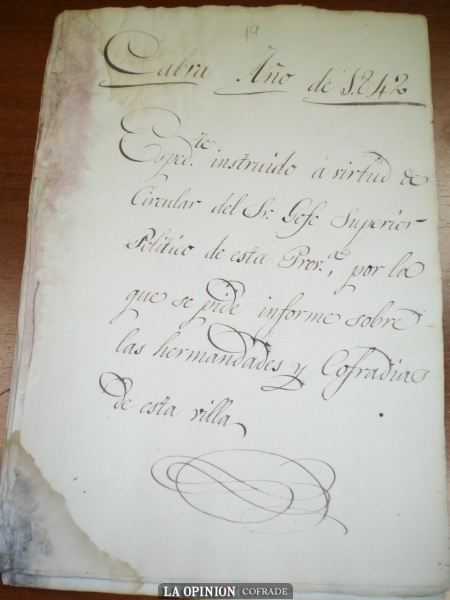 19
Cabra Año de 1842
Exped.te instruido á virtud de
Circular del Sr. Gefe Superior
Politico de esta Prov.ª, por la
que se pide informe sobre
las hermandades y Cofradias
de esta villa
LA OPINION COFRADE